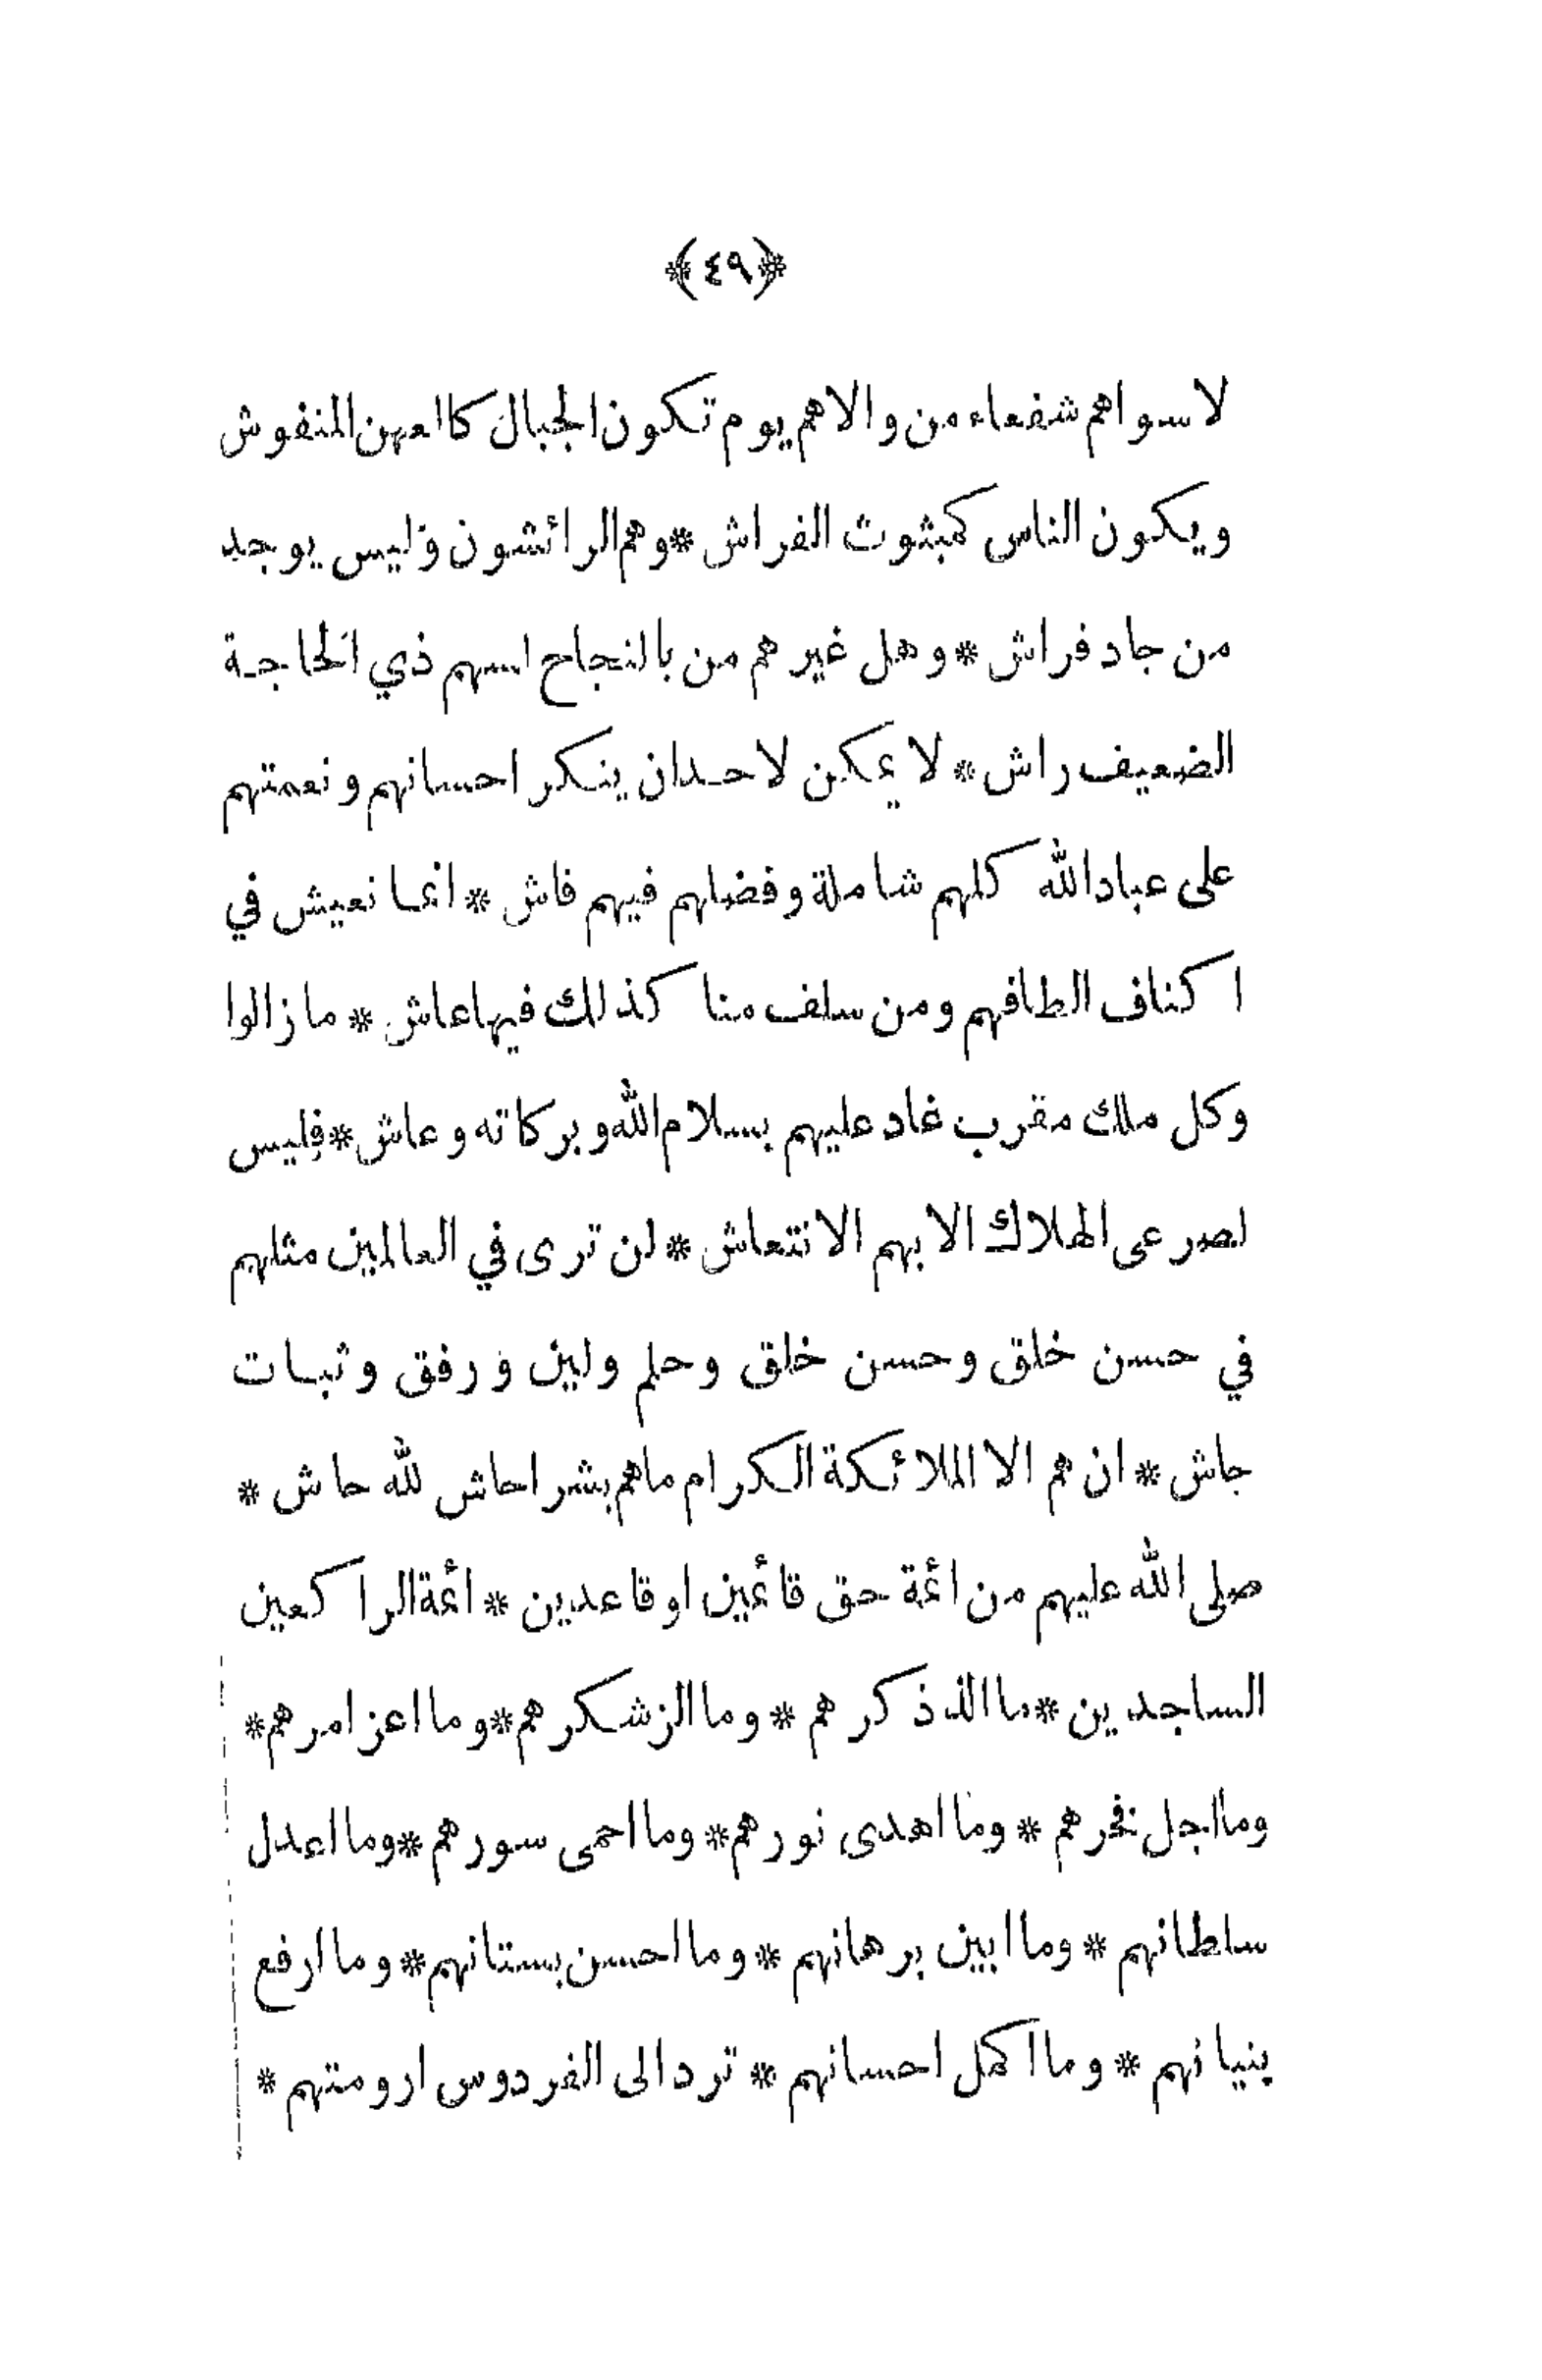 ﴿٤٩﴾
لا سواهم شفعاء من والاهم يوم تكون الجبال كالعهن المنفوش
ويكون الناس كمبثوث الفراش * وهم الرائشون وليس يوجد
من جاد فراش * وهل غيرهم من بالنجاح اسهم ذي الحاجة
الضعيف راش * لا يمكن لاحد ان ينكر احسانهم ونعمتهم
على عباد الله كلهم شاملة وفضلهم فيهم فاش * انما نعيش في
اكناف الطافهم ومن سلف منا كذلك فيها عاش * ما زالوا
وكل ملك مقرب غاد عليهم بسلام الله وبركاته وعاش * فليس
لصرعى الهلاك الا بهم الانتعاش * لن ترى في العالمين مثلهم
في حسن خلق وحسن خلق وحلم ولين ورفق وثبات
جاش * ان هم الا الملائكة الكرام ماهم بشرا حاش لله حاش *
صلى الله عليهم من ائمة حق قائمين او قاعدين * ائمة الراكعين
الساجدين * ما الذ ذكرهم * وما الز شكرهم * وما اعز امرهم *
وما اجل فخرهم * وما اهدى نورهم * وما احمى سورهم * وما اعدل
سلطانهم * وما ابين برهانهم * وما احسن بستانهم * وما ارفع
بنيانهم * وما اكمل احسانهم * ترد الى الفردوس ارومتهم *